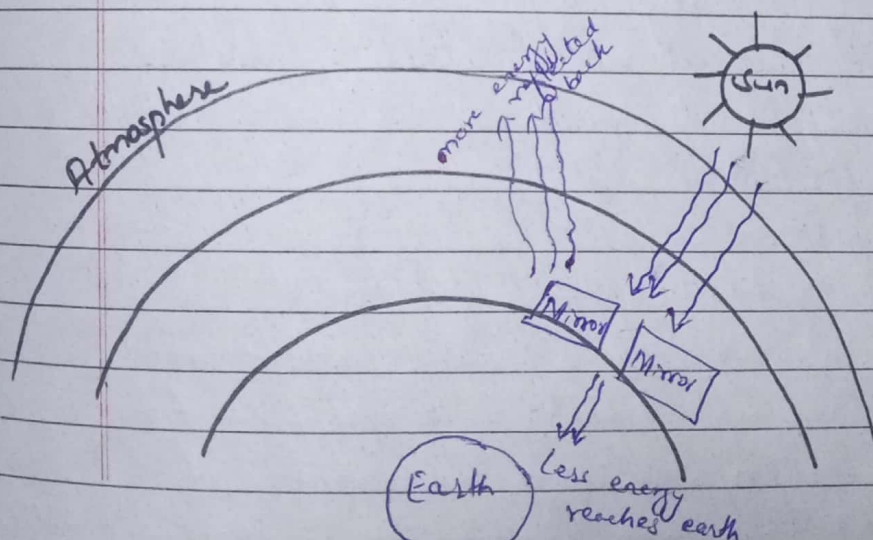 Atmosphere
more energy
reflected
back
Sun
Mirror
Mirror
Earth
Less energy
reaches earth